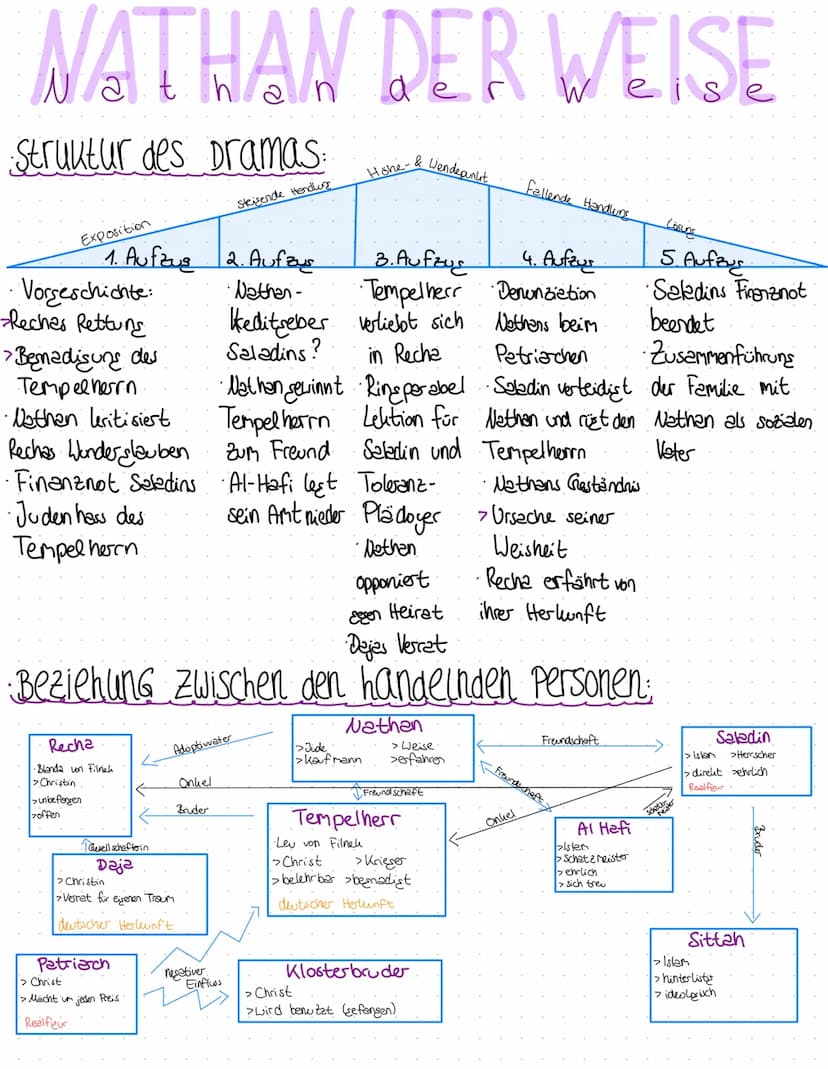 NATHAN DER WEISE
Nathan der Weise
·Struktur des Dramas:
Exposition
steigende Handlung
Höhe- & Wendepunkt
Fallende Handlung
Lösung
1. Aufzug
2. Aufzug
3. Aufzug
4. Aufzug
5. Aufzug
· Vorgeschichte:
>Rechas Rettung
>Begnadigung des
Tempelherrn
· Nathan kritisiert
Rechas Wunderglauben
· Finanznot Saladins
· Judenhass des
Tempelherrn
· Nathan-
Kreditgeber
Saladins?
· Nathan gewinnt
Tempelherrn
zum Freund
· Al-Hafi legt
sein Amt nieder
· Tempelherr
verliebt sich
in Recha
· Ringparabel
Lektion für
Saladin und
Toleranz-
Plädoyer
· Nathan
opponiert
gegen Heirat
· Dajas Verrat
· Denunziation
Nathans beim
Patriarchen
· Saladin verteidigt
Nathan und rügt den
Tempelherrn
· Nathans Geständnis
> Ursache seiner
Weisheit
· Recha erfährt von
ihrer Herkunft
· Saladins Finanznot
beendet
· Zusammenführung
der Familie mit
Nathan als sozialen
Vater
·Beziehung zwischen den handelnden Personen:
Nathan
>Jude
> Weise
>Kaufmann
>erfahren
Recha
· Blanda von Filnek
>Christin
>unbefangen
>offen
Adoptivvater
Onkel
Bruder
Freundschaft
Freundschaft
Freundschaft
Saladin
> Islam
>Herrscher
> direkt
>ehrlich
Realfigur
Tempelherr
· Leu von Filnek
>Christ
>Krieger
> belehrbar
>begnadigt
deutscher Herkunft
Onkel
Schatzmeister
Al Hafi
>Islam
>Schatzmeister
> ehrlich
> sich treu
Bruder
Gesellschafterin
Daja
> Christin
>Verrat für eigenen Traum
deutscher Herkunft
Patriarch
> Christ
> Macht um jeden Preis
Realfigur
negativer
Einfluss
Klosterbruder
> Christ
>Wird benutzt (gefangen)
Sittah
> Islam
> hinterlistig
> ideologisch